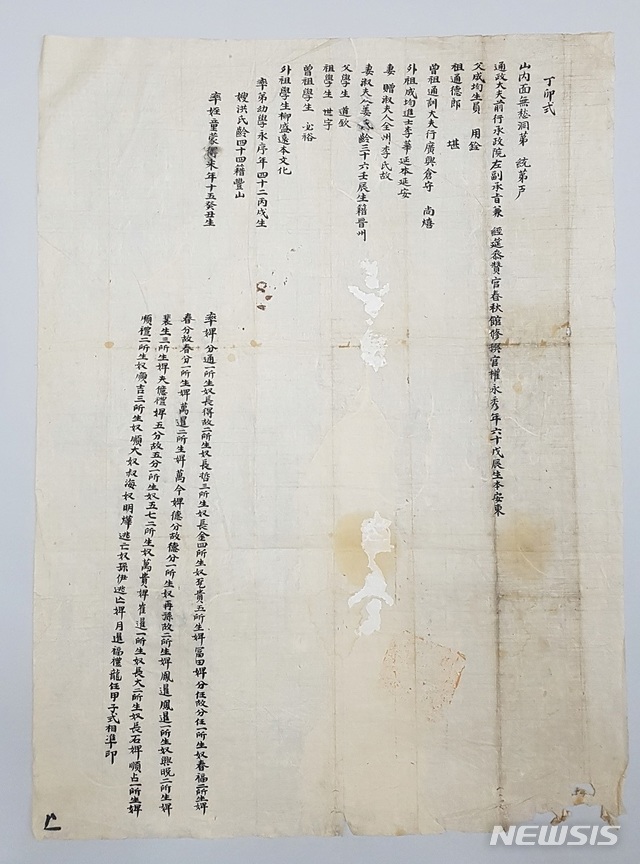 丁卯式
山內面無愁洞第 統第 戶
通政大夫前行承政院左副承旨兼 經筵參贊官春秋館修撰官權永秀年六十戊辰生本安東
父成均生員 用銓
祖通德郎 堪
曾祖通訓大夫行廣興倉守 尙熺
外祖成均進士李華延本延安
妻 贈淑夫人全州李氏故
妻淑夫人姜氏齡三十六壬辰生籍晋州
父學生 道欽
祖學生 世宇
曾祖學生 必裕
外祖學生柳盛遠本文化
率弟幼學永序年四十二丙戌生
嫂洪氏齡四十四籍豐山
率姪童蒙 來年十五癸丑生
率婢分通一所生奴長得故二所生奴長哲三所生奴長金四所生奴至貴五所生婢富田婢分任故分任一所生奴春福二所生婢
春分故春分一所生婢萬暹二所生婢萬今婢德分故德分一所生奴再孫故二所生婢鳳暹鳳暹一所生奴興旼二所生婢
裴生三所生婢夫億禮婢五分故五分一所生奴五七二所生奴萬貴婢崔暹一所生奴長大二所生奴長石婢順占一所生婢
順禮二所生奴順吉三所生奴順大奴叔海奴明燁逃亡奴孫伊逃亡婢月暹福禮龍任甲子式相準印
NEWSIS